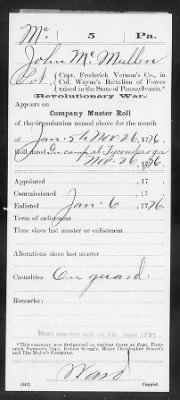 Mc | 5 | Pa.
John Mc Mullen
Col., { Capt. Frederick Vernon's Co., in
Col. Wayne's Battalion of Forces
raised in the State of Pennsylvania.*
Revolutionary War.
Appears on
Company Muster Roll
of the organization named above for the month
of Jan. 5 to Nov. 26, 1776.
Roll dated In camp at Ticonderoga
Nov. 26, 1776.
Appointed , 17 .
Commissioned , 17 .
Enlisted Jan. 6, 1776.
Term of enlistment
Time since last muster or enlistment
Alterations since last muster
Casualties On guard.
Remarks:
*This company was designated at various times as Capt. Frederick Vernon's,
and The Major's Company.
Ward
(543) Copyist.